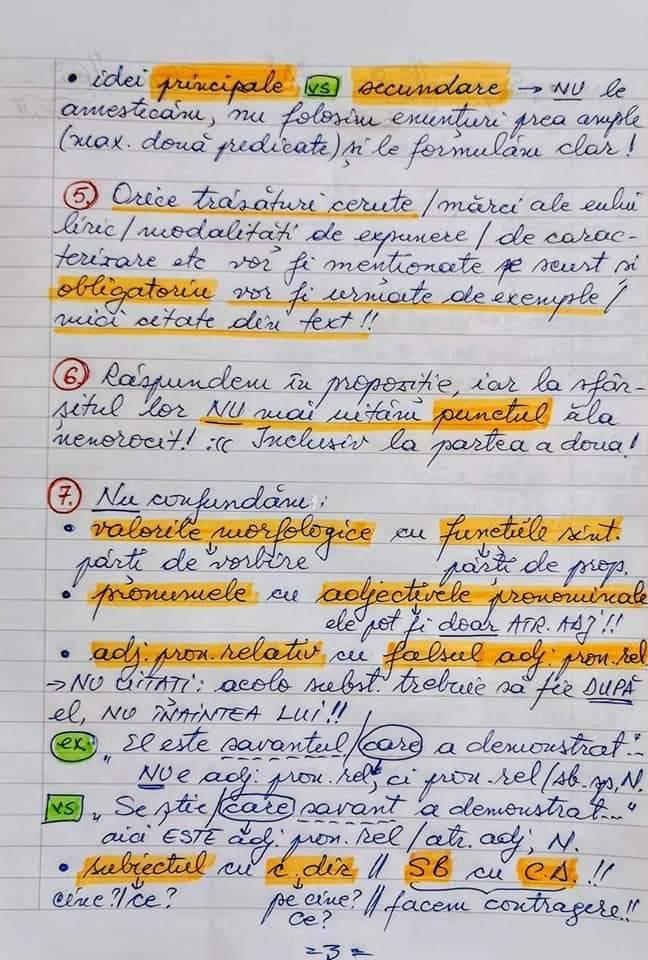 • idei principale vs secundare → NU le
amestecăm, nu folosim enunțuri prea ample
(max. două predicate) și le formulăm clar!
5. Orice trăsături cerute / mărci ale eului
liric / modalități de expunere / de carac-
terizare etc vor fi menționate pe scurt și
obligatoriu vor fi urmate de exemple /
mici citate din text!!
6. Răspundem în propoziție, iar la sfâr-
șitul lor NU mai uităm punctul ăla
nenorocit! :(( Inclusiv la partea a doua!
7. Nu confundăm:
• valorile morfologice cu funcțiile sint.
părți de vorbire părți de prop.
• pronumele cu adjectivele pronominale
ele pot fi doar ATR. ADJ!!
• adj. pron. relativ cu falsul adj. pron. rel
→ NU UITAȚI: acolo subst. trebuie să fie DUPĂ
el, NU ÎNAINTEA LUI!!
ex. „El este savantul / care a demonstrat..."
NU e adj. pron. rel, ci pron. rel / sb. sp, N.
vs „Se știe / care savant a demonstrat..."
aici ESTE adj. pron. rel / atr. adj, N.
• subiectul cu c. dir // SB cu C.D. !!
cine? / ce? pe cine? // facem contragere!!
ce?
= 3 =